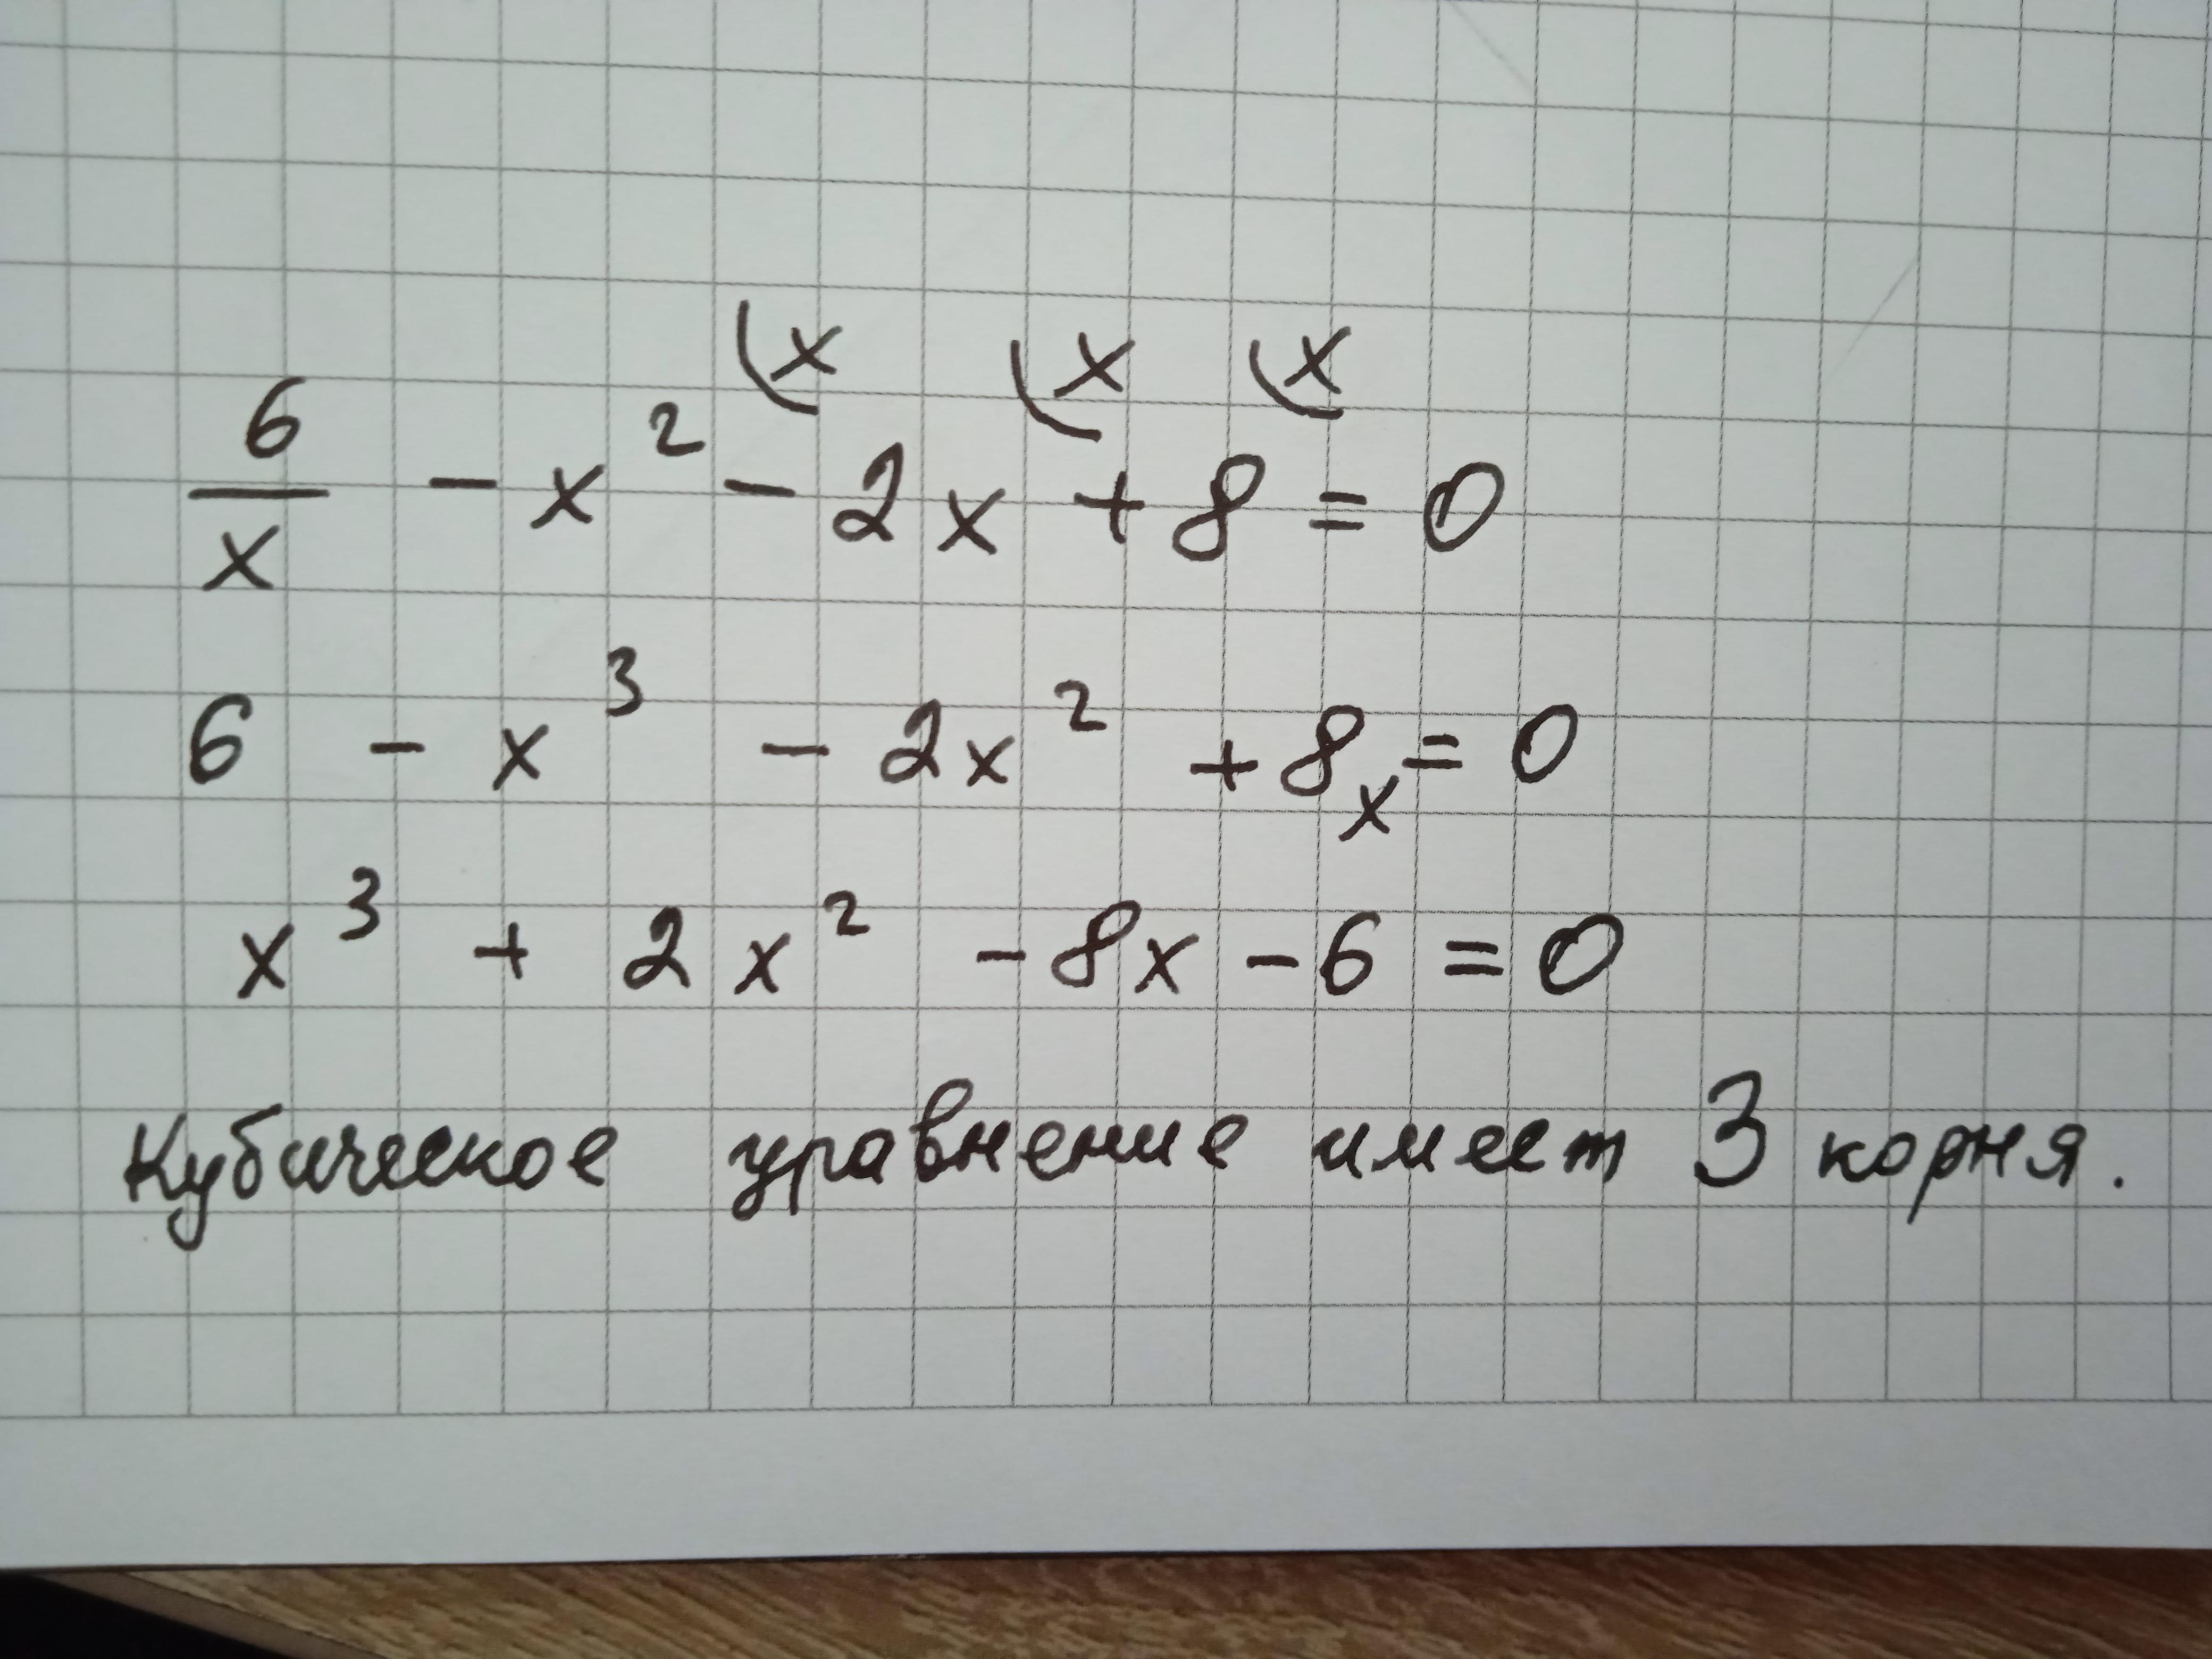 (x (x (x
6/x - x² - 2x + 8 = 0
6 - x³ - 2x² + 8x = 0
x³ + 2x² - 8x - 6 = 0
Кубическое уравнение имеет 3 корня.